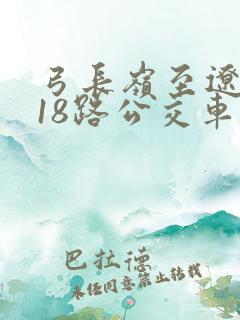 弓長嶺至遼
18路公交車
巴拉德
未任同意禁止转载